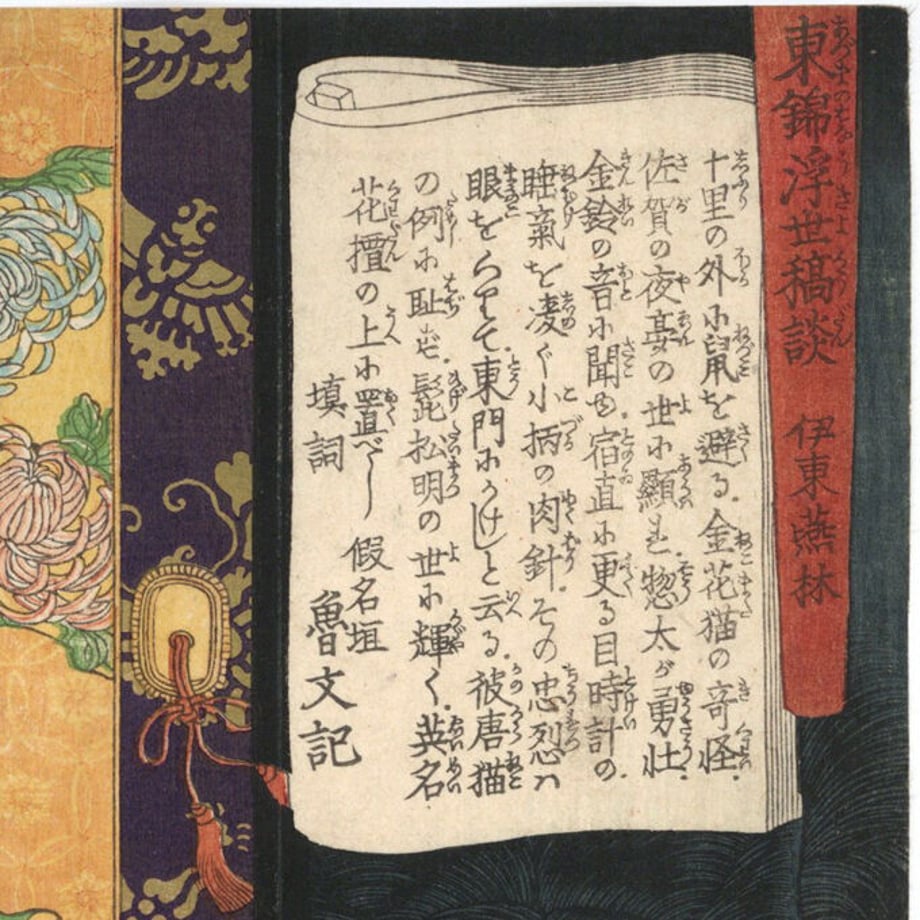 東錦浮世稿談　伊東燕林
十里の外に鼠を避る。金花猫の奇怪。
佐賀の夜の世に顯れ。惣太が勇壮。
金鈴の音に聞ゆ。宿直に更る目時計の。
睡氣を凌ぐ小柄の肉針。その忠烈ハ
眼をくりて東門にかけしと云る。彼唐猫
の例に耻ず。髭松明の世に輝く英名
花壇の上に置べし
填詞　假名垣
魯文記